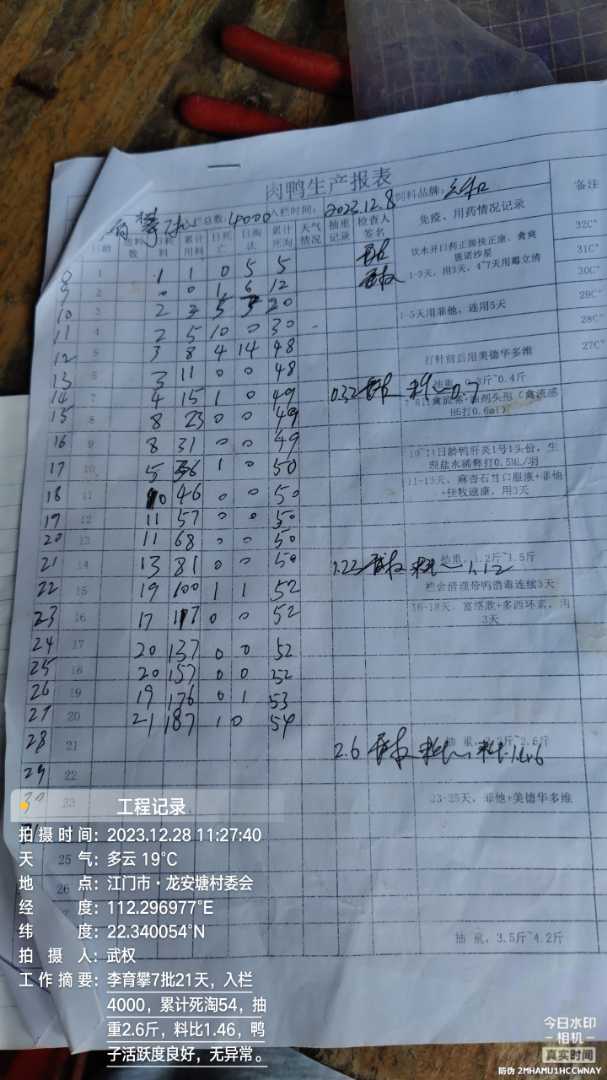 肉鸭生产报表
李 总数: 4000 入栏时间: 2023.12.8 饲料品牌:
日龄 日耗料 累计用料 日死亡 日淘汰 累计死淘 天气情况 抽重记录 检查人签名 免疫、用药情况记录 备注
8 1 1 1 0 5 5 32C°
9 2 0 0 1 6 12 31C°
1-3天，用3天，4~7天用霉立清
30C°
10 3 2 3 20
1-5天用菲他，连用5天
11 4 2 5 10 0 30 28C°
12 5 3 8 4 14 48 打针前后用美德华多维 27C°
13 6 3 11 0 0 48
14 7 4 15 1 0 49 0.32 0.7 斤~0.4斤
15 8 8 23 0 0 49 H5打0.6ml）
16 9 8 31 0 0 49
17 10 5 36 1 0 50 10-11日龄鸭肝炎1号1头份，生理盐水稀释打0.5ML/羽
18 11 10 46 0 0 50 11-13天，麻杏石甘口服液+菲他+佳牧速康，用3天
19 12 11 57 0 0 50
20 13 11 68 0 0 50
21 14 13 81 0 0 50 1.22 1.12 抽重，1.2斤~1.5斤
22 15 19 100 1 1 52 栏舍消毒带鸭消毒连续3天
23 16 17 117 0 0 52 16-18天，
3天
24 17 20 137 0 0 52
25 18 20 157 0 0 52
26 19 19 176 0 1 53
27 20 21 187 1 0 54
28 21 2.6 1.46
29 22
30 23 23-25天，菲他+美德华多维
25
26
抽重，3.5斤~4.2斤
工程记录
拍摄时间: 2023.12.28 11:27:40
天气: 多云 19°C
地点: 江门市·龙安塘村委会
经度: 112.296977°E
纬度: 22.340054°N
拍摄人: 武权
工作摘要: 李育攀7批21天，入栏
4000，累计死淘54，抽
重2.6斤，料比1.46，鸭
子活跃度良好，无异常。
今日水印
相机
真实时间
防伪 2MHAMU1HCCWNAY